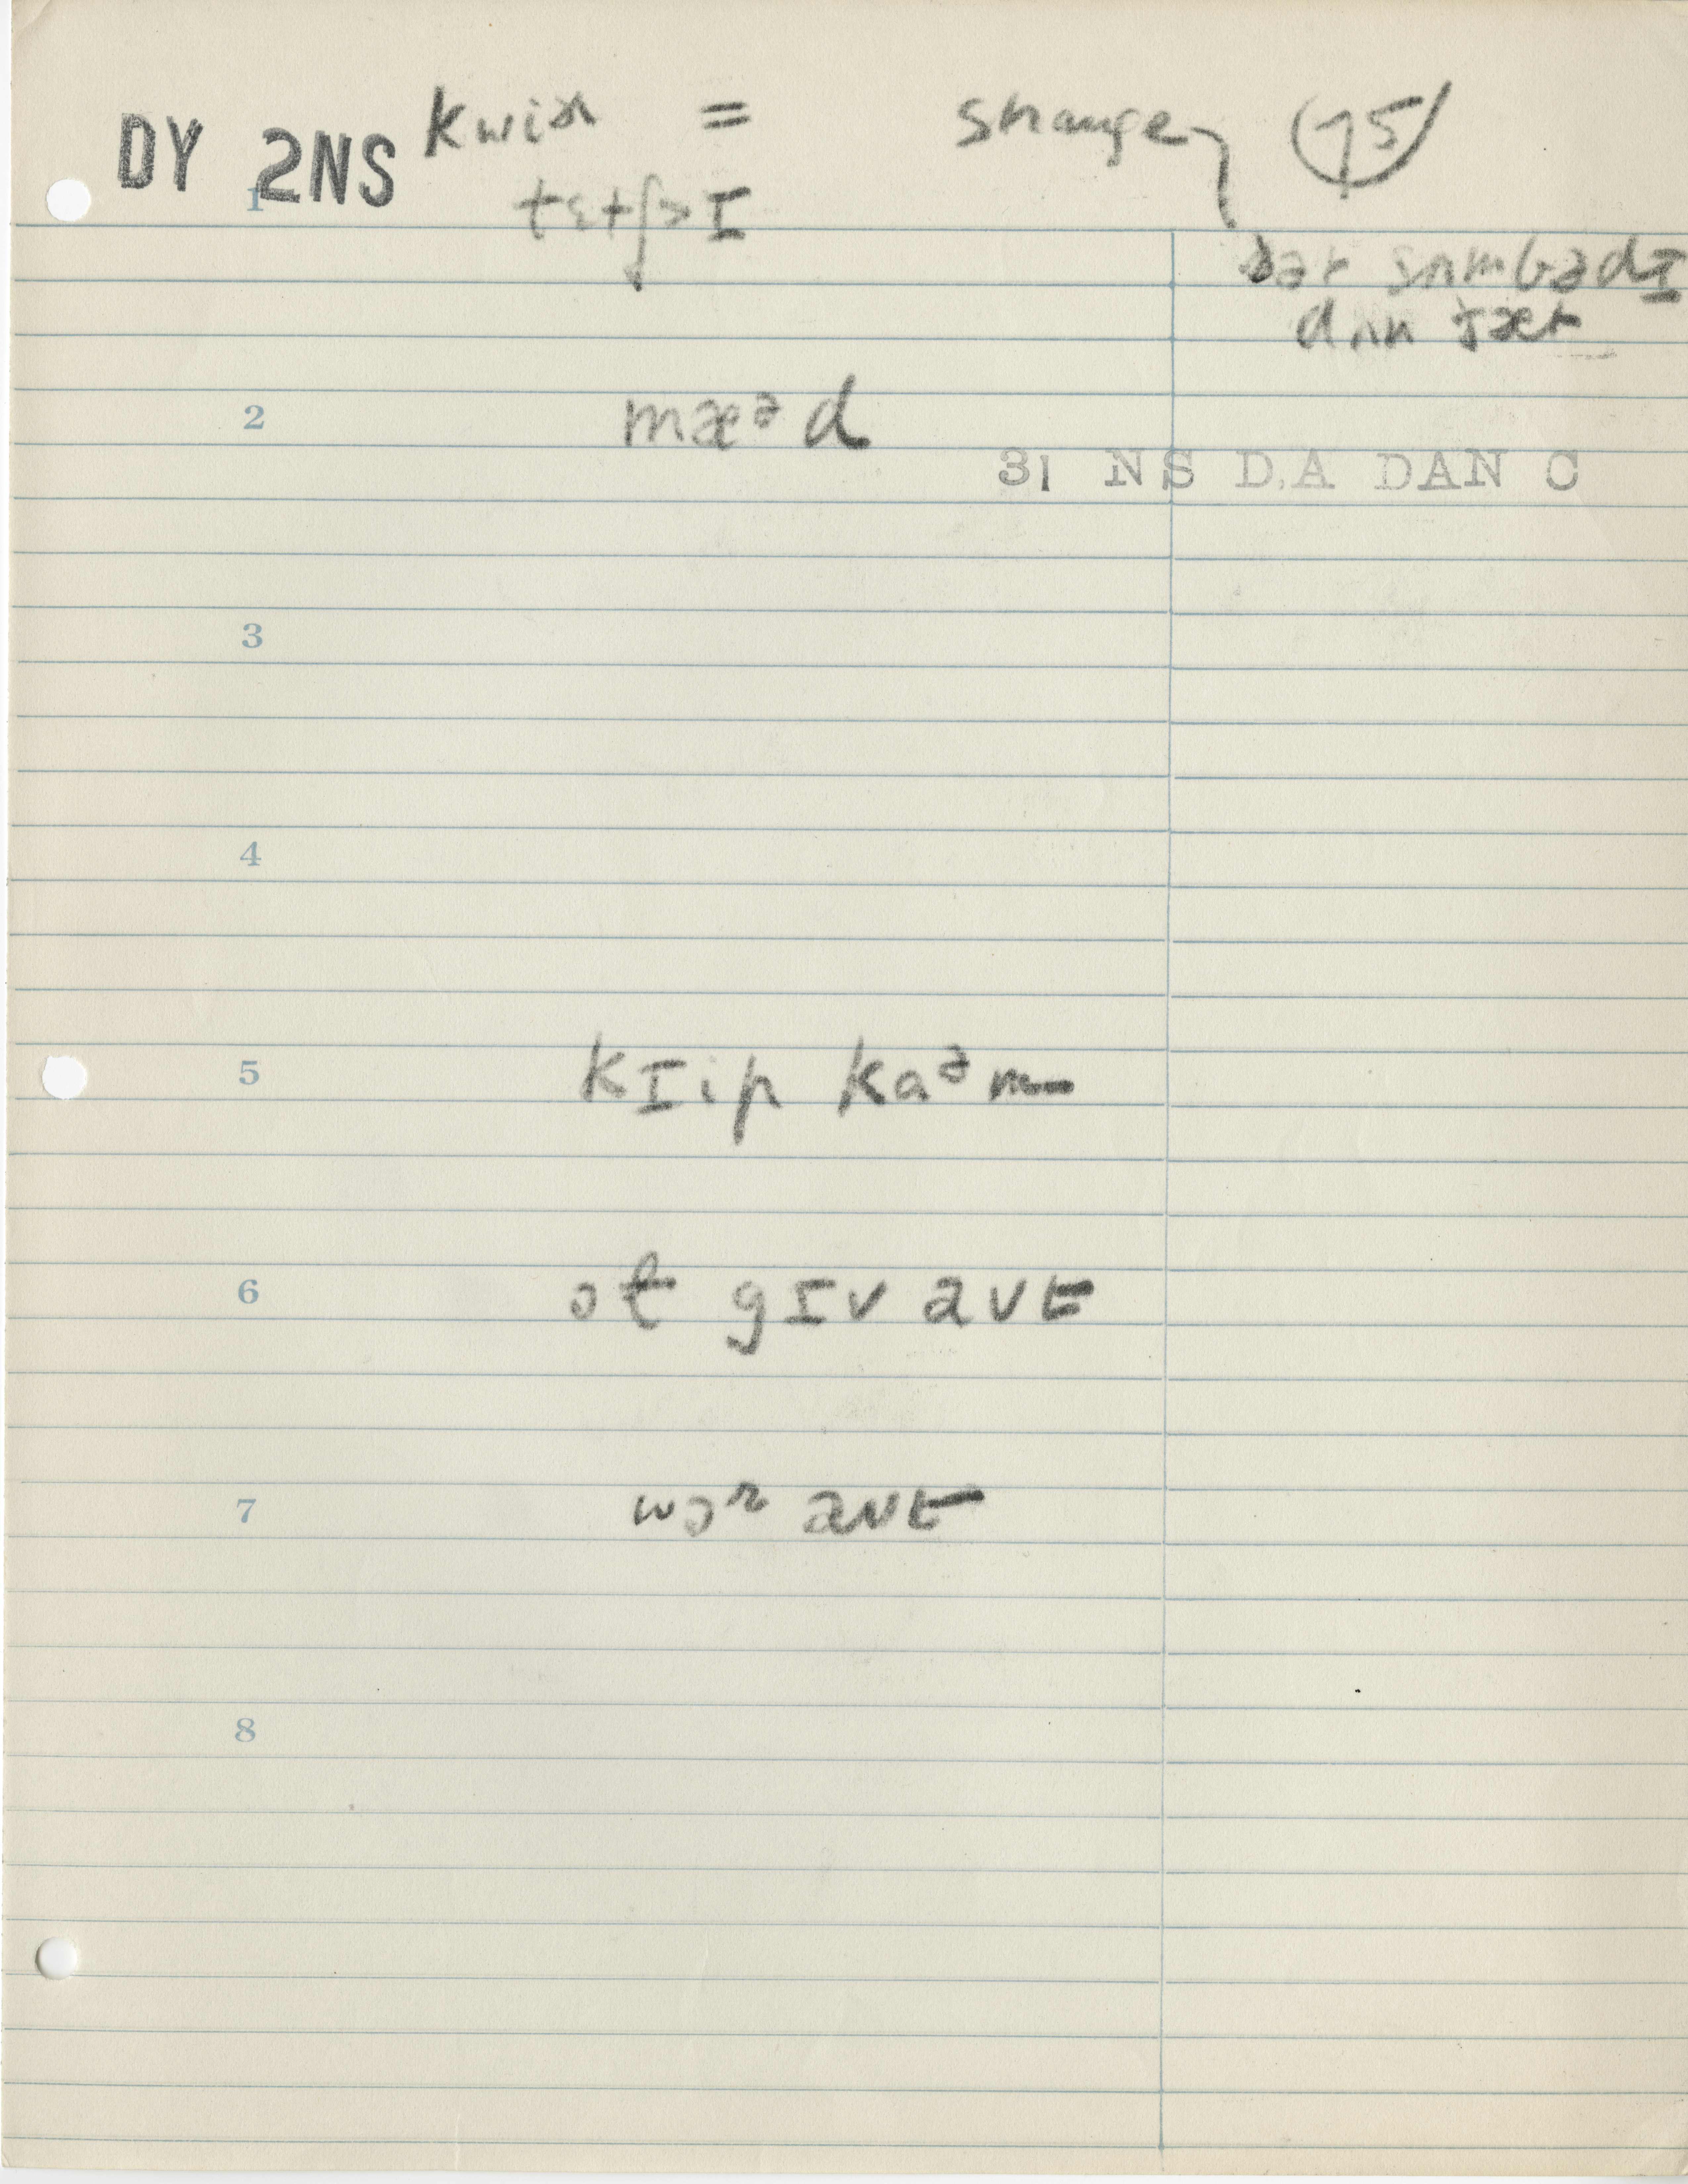 DY 2NS kwiɚ = strange (75)
1 tɛtʃɪ
ðər sʌmbədɪ
dʌn ðæt
2 mæᵊd
31 NS D.A DAN C
3
4
5 kɪip kaᵊm
6 ɔt gɪv aʊt
7 wɔɚ aʊt
8